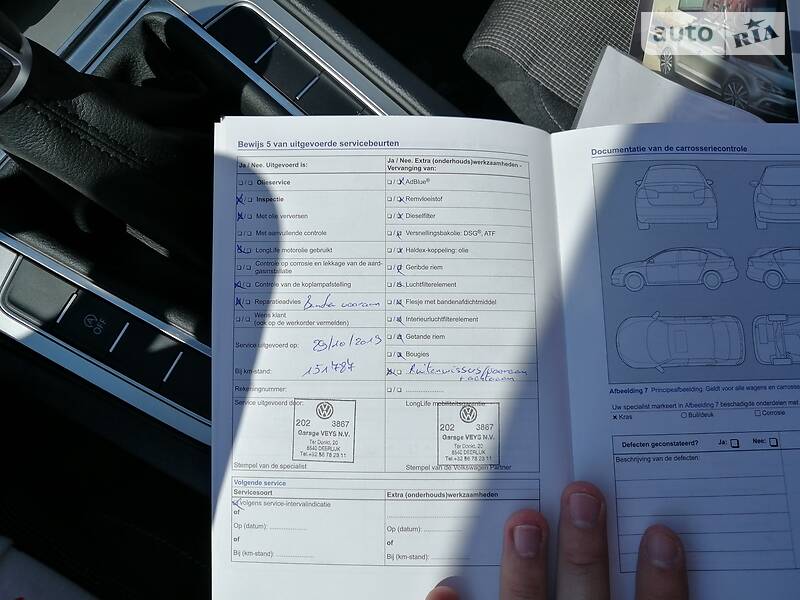 auto RIA
OFF
Bewijs 5 van uitgevoerde servicebeurten
Ja / Nee. Uitgevoerd is:
Ja / Nee. Extra (onderhouds)werkzaamheden - Vervanging van:
Olieservice
AdBlue®
Inspectie
Remvloeistof
Met olie verversen
Dieselfilter
Met aanvullende controle
Versnellingsbakolie: DSG®, ATF
LongLife motorolie gebruikt
Haldex-koppeling: olie
Controle op corrosie en lekkage van de aard-
gasinstallatie
Geribde riem
Controle van de koplampafstelling
Luchtfilterelement
Reparatieadvies Banden vooraan
Flesje met bandenafdichtmiddel
Wens klant
(ook op de werkorder vermelden)
Interieurluchtfilterelement
Getande riem
Service uitgevoerd op: 29/10/2019
Bougies
Bij km-stand: 151787
Ruitenwissers vooraan
+ achteraan
Rekeningnumer:
Service uitgevoerd door:
LongLife mobiliteitsgarantie:
202 3867
Garage VEYS N.V.
Ter Donkt, 20
8540 DEERLIJK
Tel.+32 56 78 23 11
202 3867
Garage VEYS N.V.
Ter Donkt, 20
8540 DEERLIJK
Tel.+32 56 78 23 11
Stempel van de specialist
Stempel van de Volkswagen Partner
Volgende service
Servicesoort
Extra (onderhouds)werkzaamheden
volgens service-intervalindicatie
of
Op (datum): ....................
Op (datum): ....................
of
of
Bij (km-stand): ....................
Bij (km-stand): ....................
Documentatie van de carrosseriecontrole
Afbeelding 7 Principeafbeelding. Geldt voor alle wagens en carrosse
Uw specialist markeert in Afbeelding 7 beschadigde onderdelen met
× Kras
Buil/deuk
Corrosie
Defecten geconstateerd? Ja: Nee:
Beschrijving van de defecten: